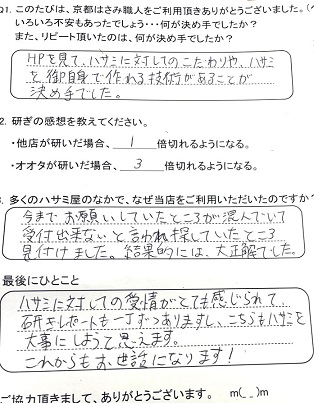 Q1. このたびは、京都はさみ職人をご利用頂きありがとうございました。(
いろいろ不安もあったでしょう・・・何が決め手でしたか？
また、リピート頂いたのは、何が決め手でしたか？
HPを見て、ハサミに対してのこだわりや、ハサミ
を御自身で作れる技術があることが
決め手でした。
2. 研ぎの感想を教えてください。
・他店が研いだ場合、 1 倍切れるようになる。
・オオタが研いだ場合、 3 倍切れるようになる。
. 多くのハサミ屋のなかで、なぜ当店をご利用いただいたのですか
今までお願いしていたところが混んでいて
受付出来ないと言われ探していたところ
見付けました。結果的には、大正解でした。
最後にひとこと
ハサミに対しての愛情がとても感じられて
研ぎレポートも一丁ずつありますし、こちらもハサミを
大事にしようて思えます。
これからもお世話になります！
ご協力頂きまして、ありがとうございます。 m(_)m